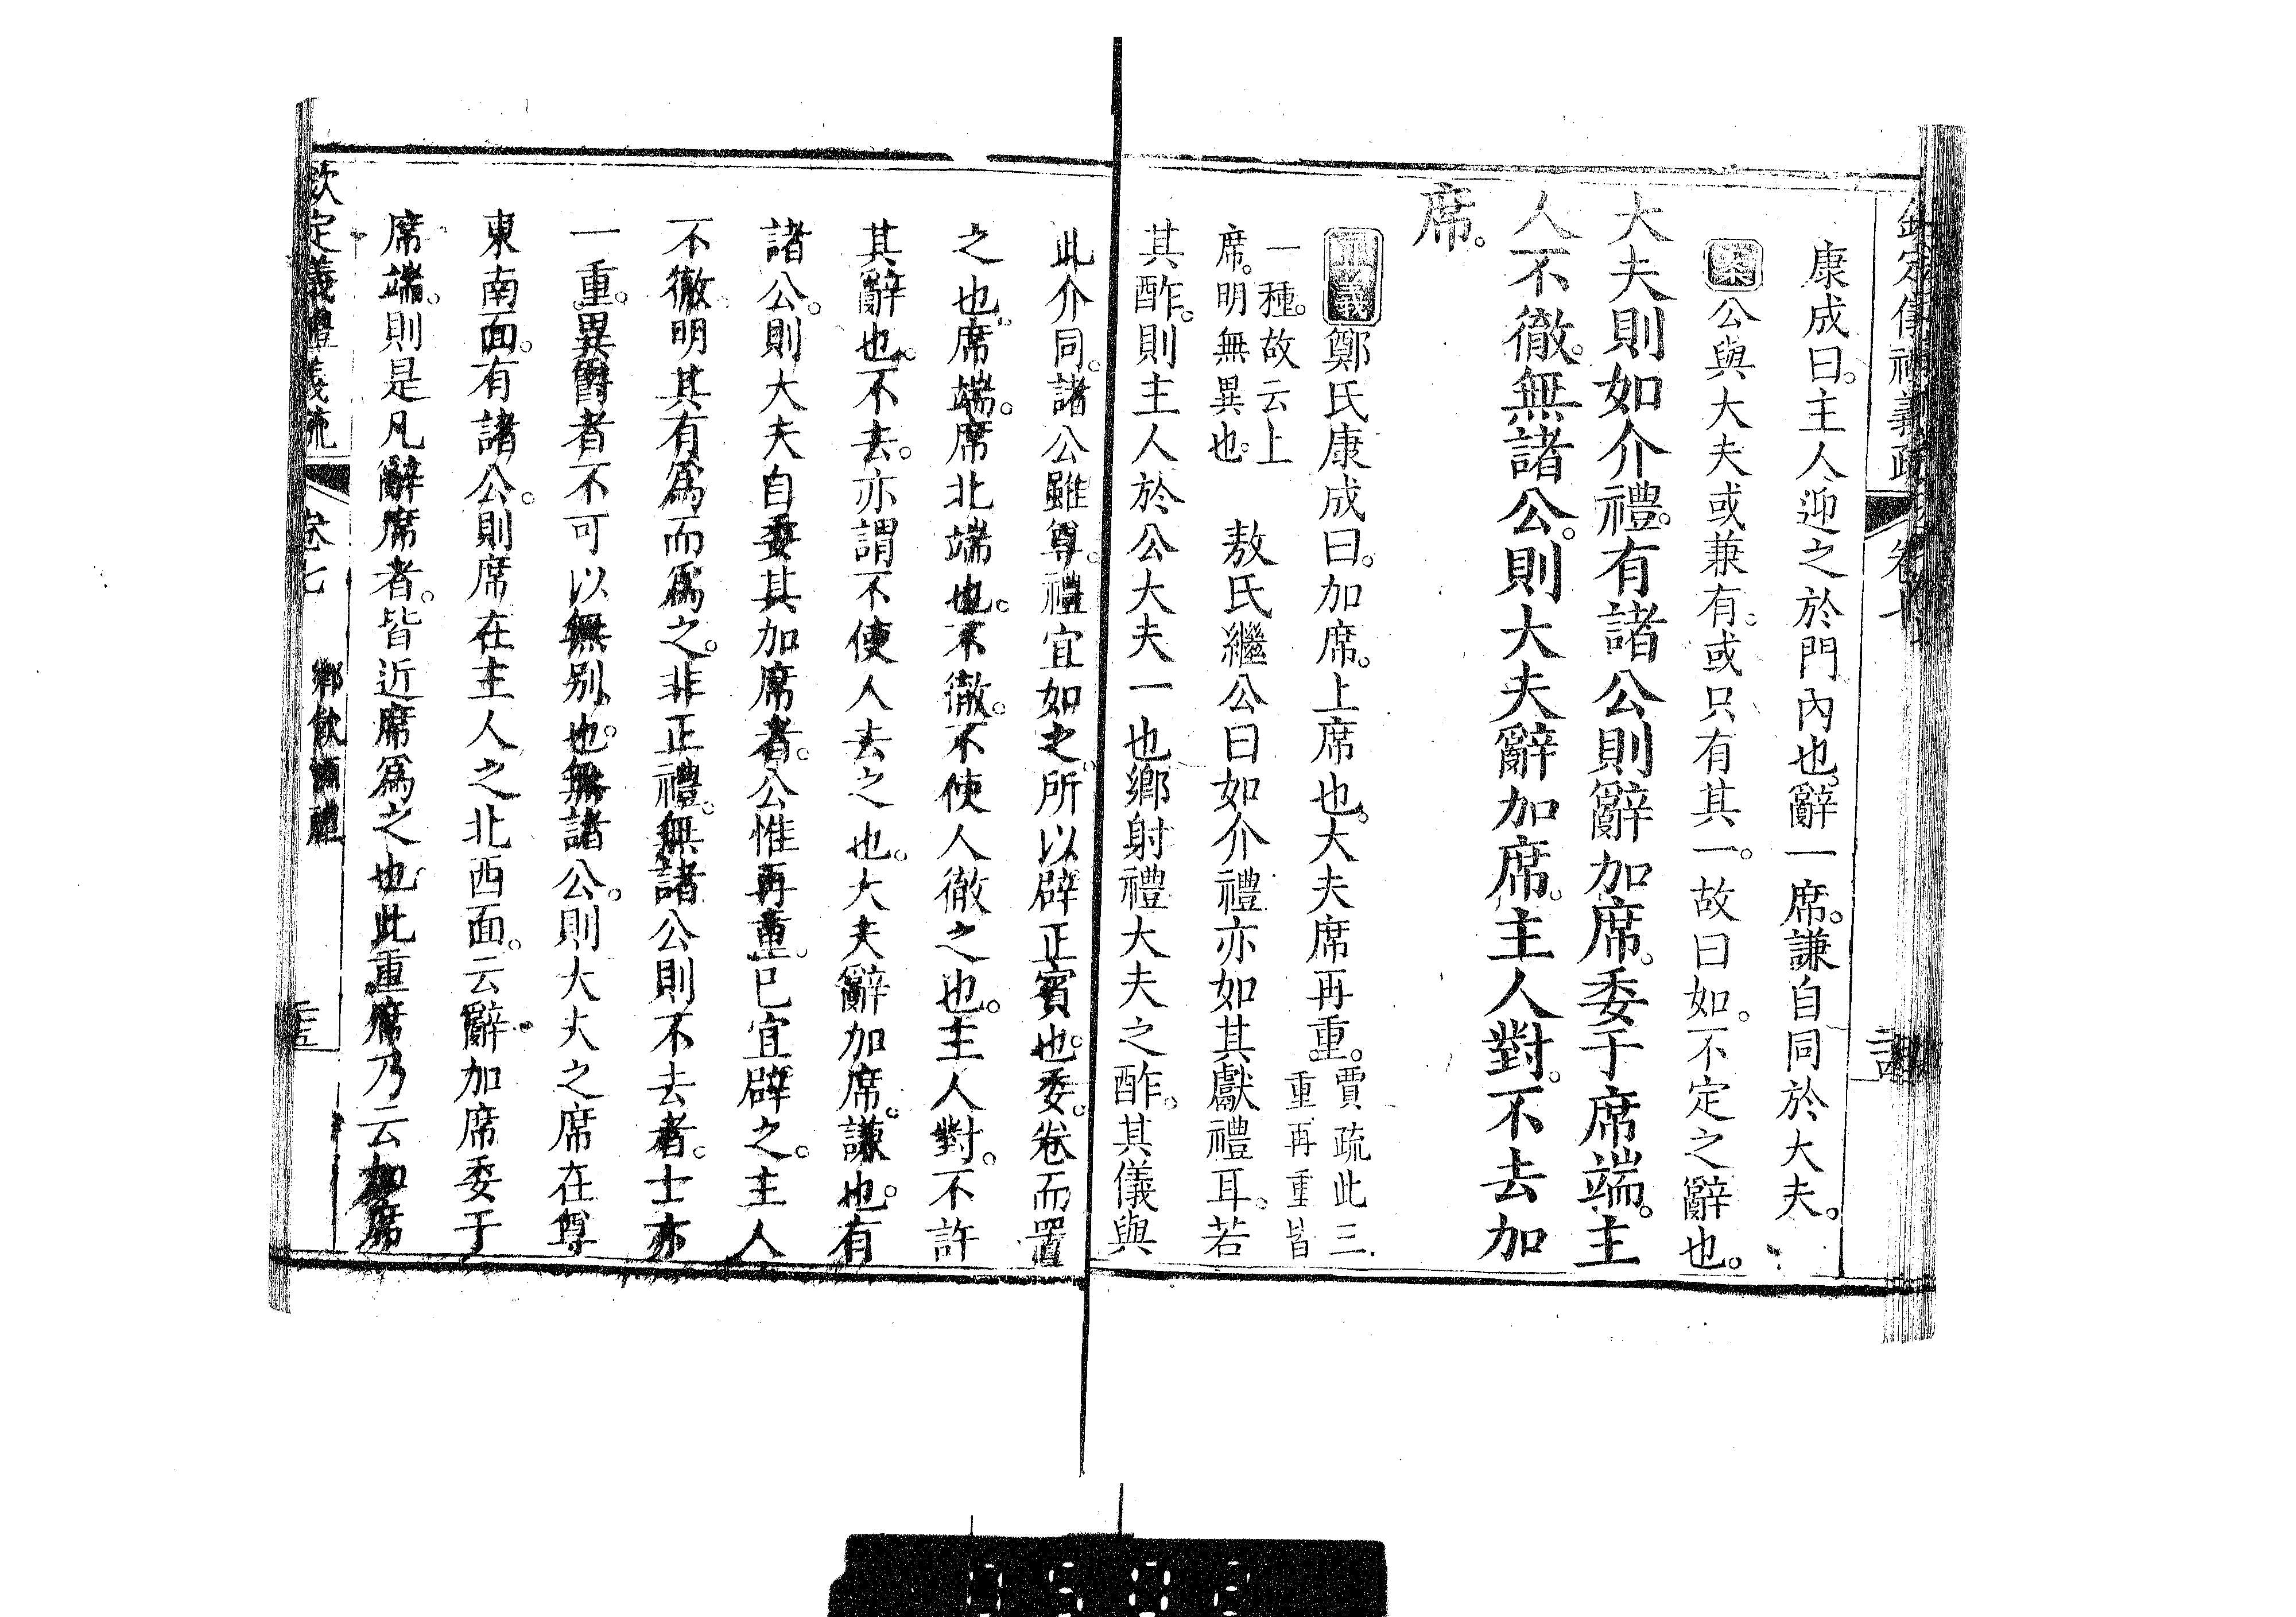 欽定儀禮義疏 卷七
康成曰。主人迎之於門內也。辭一席。謙自同於大夫。
案公與大夫或兼有。或只有其一。故曰如。不定之辭也。
大夫則如介禮。有諸公則辭加席。委于席端。主
人不徹。無諸公。則大夫辭加席。主人對。不去加
席。
正義鄭氏康成曰。加席。上席也。大夫席再重。賈疏此三
重再重皆
一種。故云上
席。明無異也。
敖氏繼公曰如介禮亦如其獻禮耳。若
其酢。則主人於公大夫一也鄉射禮大夫之酢。其儀與
此介同。諸公雖尊。禮宜如之。所以辟正賓也。委。卷而置
之也。席端。席北端也。不徹。不使人徹之也。主人對。不許
其辭也。不去。亦謂不使人去之也。大夫辭加席。謙也。有
諸公。則大夫自委其加席者。公惟再重。已宜辟之。主人
不徹。明其有爲而爲之。非正禮。無諸公則不去者。士亦
一重。異爵者不可以無別也。無諸公。則大夫之席在尊
東南面。有諸公。則席在主人之北西面。云辭加席委于
席端。則是凡辭席者。皆近席爲之也。此重席乃云加席
欽定儀禮義疏 卷七 鄉飲酒禮